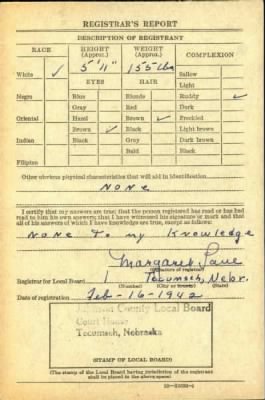 REGISTRAR'S REPORT
DESCRIPTION OF REGISTRANT
RACE HEIGHT (Approx.) WEIGHT (Approx.) COMPLEXION
5' 11" 155 lbs
White ✓ EYES HAIR Sallow
Light
Negro Blue Blonde Ruddy ✓
Gray Red Dark
Oriental Hazel Brown ✓ Freckled
Brown ✓ Black Light brown
Indian Black Gray Dark brown
Bald Black
Filipino
Other obvious physical characteristics that will aid in identification
none
I certify that my answers are true; that the person registered has read or has had
read to him his own answers; that I have witnessed his signature or mark and that
all of his answers of which I have knowledge are true, except as follows:
none to my knowledge
Margaret
(Signature of registrar)
Registrar for Local Board 1 Tecumseh, Nebr.
(Number) (City or county) (State)
Date of registration Feb-16-1942
County Local Board
Court House
Tecumseh, Nebraska
(STAMP OF LOCAL BOARD)
(The stamp of the Local Board having jurisdiction of the registrant
shall be placed in the above space.)